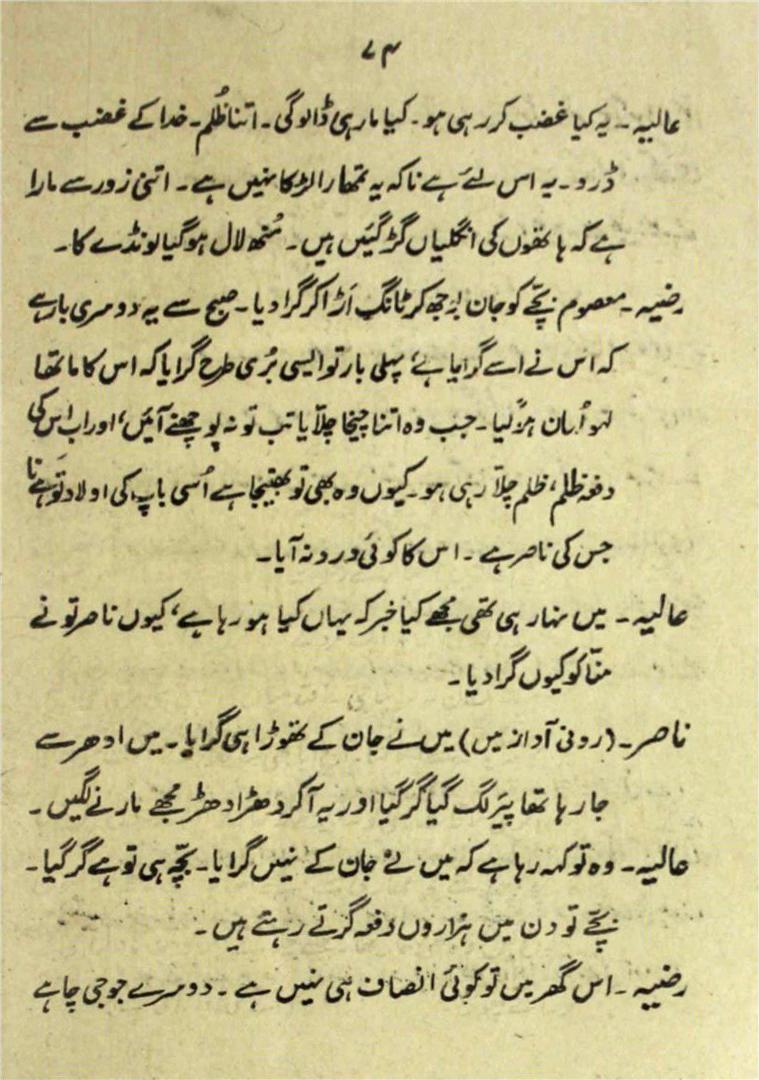 ۷۴
عالیہ۔ یہ کیا غضب کر رہی ہو۔ کیا مار ہی ڈالو گی۔ اتنا ظُلم۔ خدا کے غضب سے
ڈرو۔ یہ اس لئے ہے نا کہ یہ تمھارا لڑکا نہیں ہے۔ اتنی زور سے مارا
ہے کہ ہاتھوں کی انگلیاں گڑ گئیں ہیں۔ مُنھ لال ہو گیا لونڈے کا۔
رضیہ۔ معصوم بچّے کو جان بوجھ کر ٹانگ اَڑا کر گرا دیا۔ صبح سے یہ دوسری بار ہے
کہ اس نے اسے گرایا ہے، پہلی بار تو ایسی بُری طرح گرایا کہ اس کا ماتھا
لہولہان ہو گیا۔ جب وہ اتنا چیخا چلّایا تب تو نہ پوچھنے آئیں، اور اب اس کی
دفعہ ظلم، ظلم چلّا رہی ہو۔ کیوں وہ بھی تو بھتیجا ہے اُسی باپ کی اولاد تو ہے نا
جس کی ناصر ہے۔ اس کا کوئی درد نہ آیا۔
عالیہ۔ میں نہا رہی تھی مجھے کیا خبر کہ یہاں کیا ہو رہا ہے، کیوں ناصر تو نے
منّا کو کیوں گرا دیا۔
ناصر۔ (رونی آواز میں) میں نے جان کے تھوڑا ہی گرایا۔ میں ادھر سے
جا رہا تھا پَیر لگ گیا گر گیا اور یہ آ کر دھڑا دھڑ مجھے مارنے لگیں۔
عالیہ۔ وہ تو کہہ رہا ہے کہ میں نے جان کے نہیں گرایا۔ بچّہ ہی تو ہے گر گیا۔
بچّے تو دن میں ہزاروں دفعہ گرتے رہتے ہیں۔
رضیہ۔ اس گھر میں تو کوئی انصاف ہی نہیں ہے۔ دوسرے جو جی چاہے